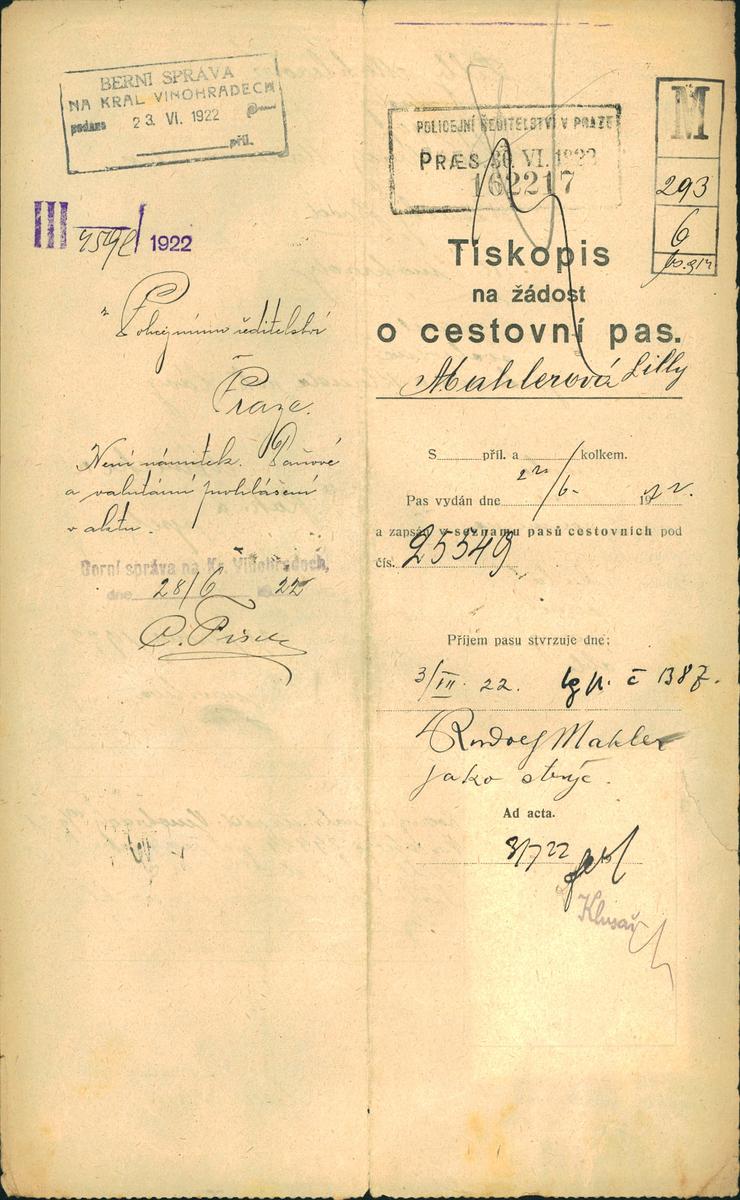 BERNÍ SPRÁVA
NA KRÁL. VINOHRADECH
podáno 23. VI. 1922
příl.
III 1922
Policejnímu ředitelství
v
Praze.
Není námitek. Daňové
a valutární prohlášení
v aktu.
Berní správa na Kr. Vinohradech,
dne 28/6 22
POLICEJNÍ ŘEDITELSTVÍ V PRAZE
PRÆS. 30. VI. 1922
162217
M
293
6
Tiskopis
na žádost
o cestovní pas.
Mahlerová Lilly
S příl. a kolkem.
Pas vydán dne 1922.
a zapsán v seznamu pasů cestovních pod
čís. 25549
Příjem pasu stvrzuje dne:
3/VII. 22. lg p. č 1387.
Rudolf Mahler
jako strýc.
Ad acta.
3/7 22
Klusař